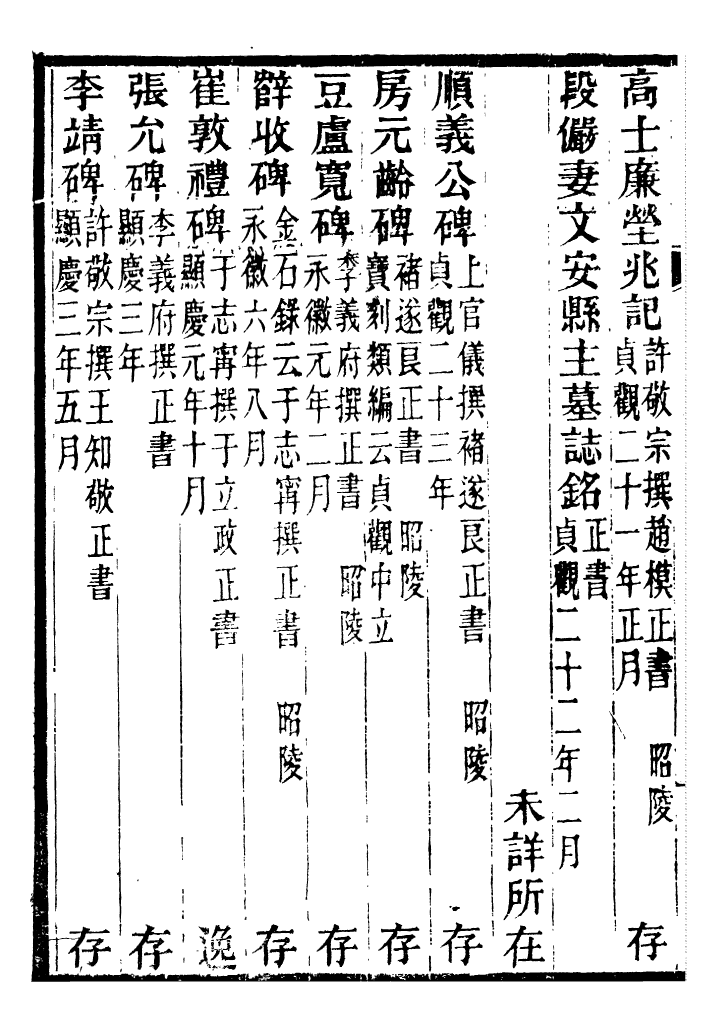 高士廉塋兆記許敬宗撰趙模正書　昭陵
貞觀二十一年正月
存
段儼妻文安縣主墓誌銘正書
貞觀二十二年二月
未詳所在
順義公碑上官儀撰褚遂良正書　昭陵
貞觀二十三年
存
房元齡碑褚遂良正書　昭陵
寶刻類編云貞觀中立
存
豆盧寬碑李義府撰正書　昭陵
永徽元年二月
存
薛收碑金石錄云于志寧撰正書　昭陵
永徽六年八月
存
崔敦禮碑于志寧撰于立政正書
顯慶元年十月
逸
張允碑李義府撰正書
顯慶三年
存
李靖碑許敬宗撰王知敬正書
顯慶三年五月
存